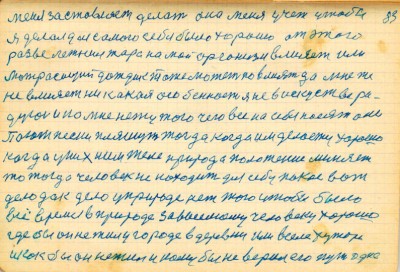 меня заставляет делать она меня учит чтобы 89
я делал для самого себя было хорошо от этого
разве летния жара на мой организм влияет или
дождик тоже может повлият да мне не
не влияет ни какая особеность я не в искустве ра-
и по мне нету того чего все на себя носят они
Поют песни пляшут тогда когда им делается хорошо
когда у них природа положение миняет
то тогда человек не находит для себя покое вот
дело дак дело у природе нет того чтобы было
всё время в природе зависемому человеку хорошо
где бы он не жил у городе в деревни или в селе хуторе
и как бы он не жил и кому бы не верил его путь одно